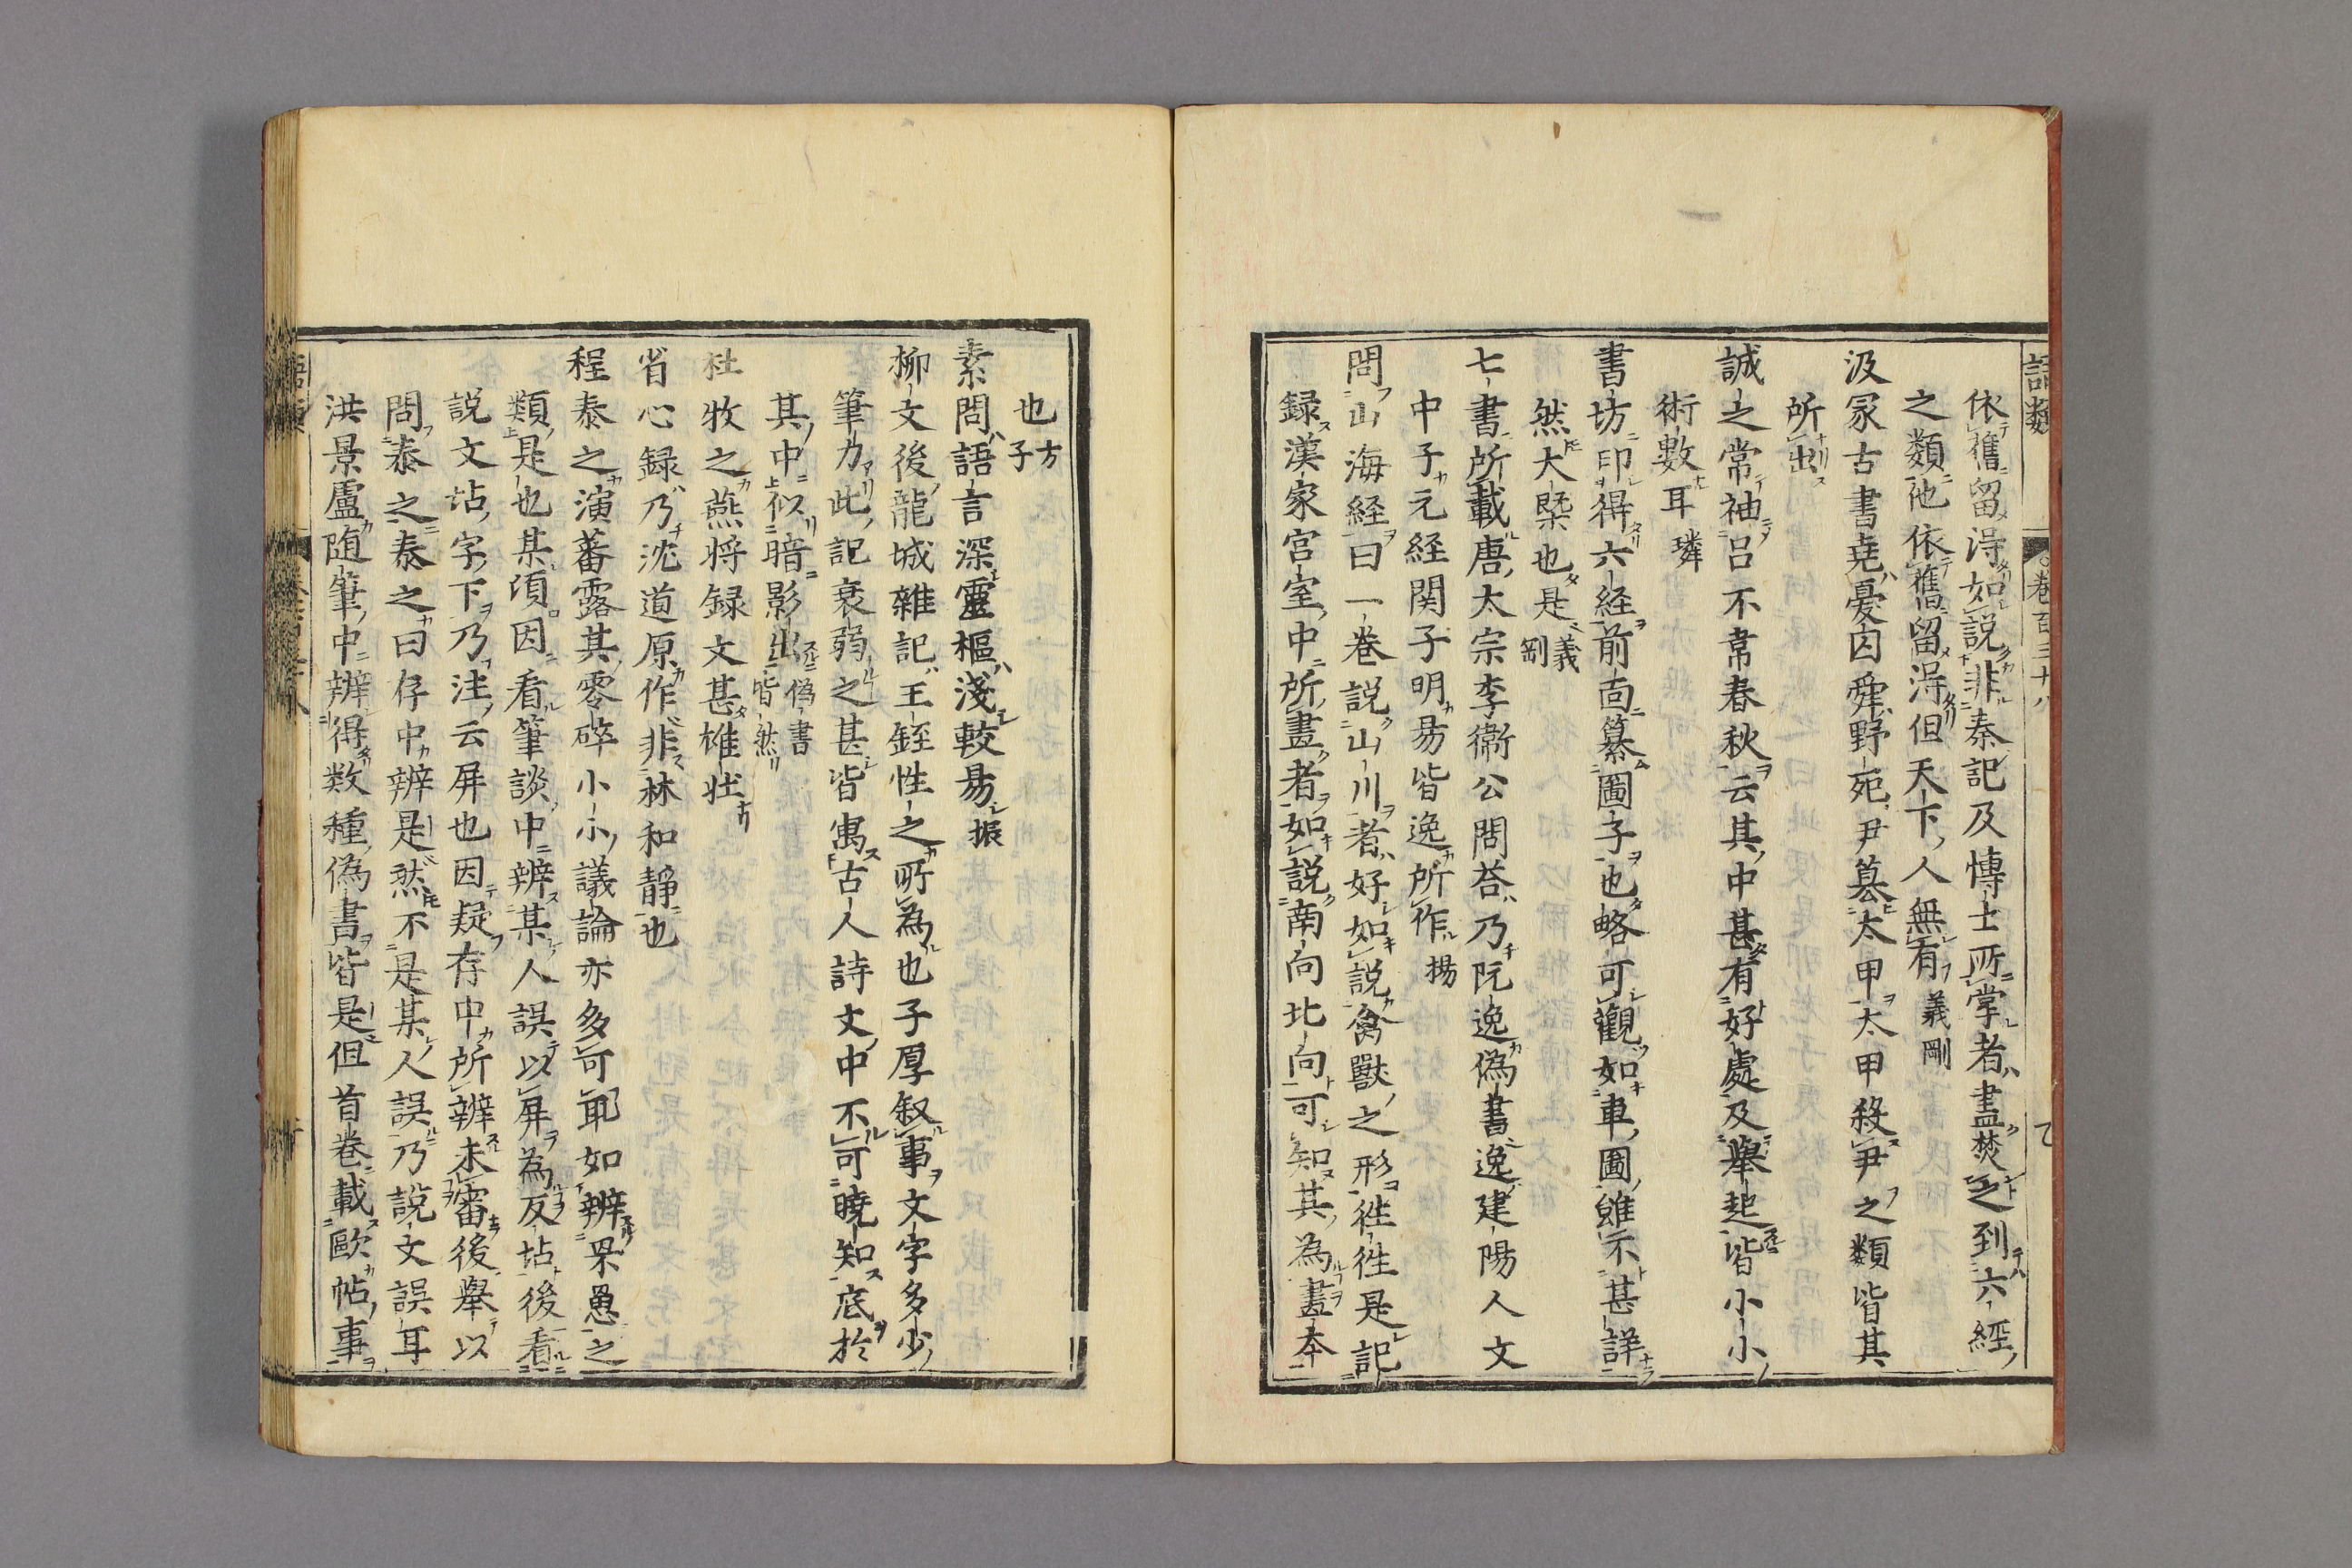 語類
卷百三十八
依舊留得如說非秦記及博士所掌者盡焚之到六經
之類他依舊留得但天下人無有義剛
汲冢古書堯憂囚舜野死尹篡太甲太甲殺尹之類皆其
所出
誠之常袖呂不韋春秋云其中甚有好處及舉起皆小小
術數耳璘
書坊印得六經前面纂圖子也略可觀如車圖雖不甚詳
然大槩也是義剛
七書所載唐太宗李衞公問荅乃阮逸偽書逸建陽人文
中子元經関子明易皆逸所作揚
問山海経曰一卷說山川者好如說禽獸之形徃徃是記
録漢家宮室中所畫者如說南向北向可知其為畫本
也方子
素問語言深靈樞淺較易振
柳文後龍城雜記王銍性之所為也子厚叙事文字多少
筆力此記衰弱之甚皆寓古人詩文中不可曉知底於
其中似暗影出偽書皆然
杜牧之燕将録文甚雄壮
省心録乃沈道原作非林和靜也
程泰之演蕃露其零碎小小議論亦多可取如辨罘罳之
類是也某頃因看筆談中辨某人誤以屏為反坫後看
說文坫字下乃注云屏也因疑存中所辨未審後舉以
問泰之泰之曰存中辨是然不是某人誤乃說文誤耳
洪景盧随筆中辨得数種偽書皆是但首卷載歐帖事